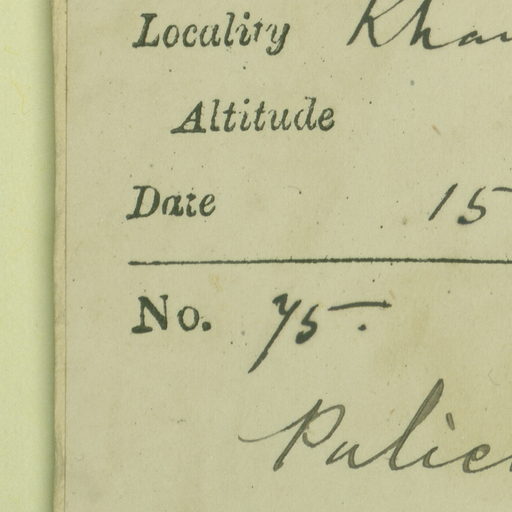 Locality Khan
Altitude
Date 15
No. 75.
Pulic